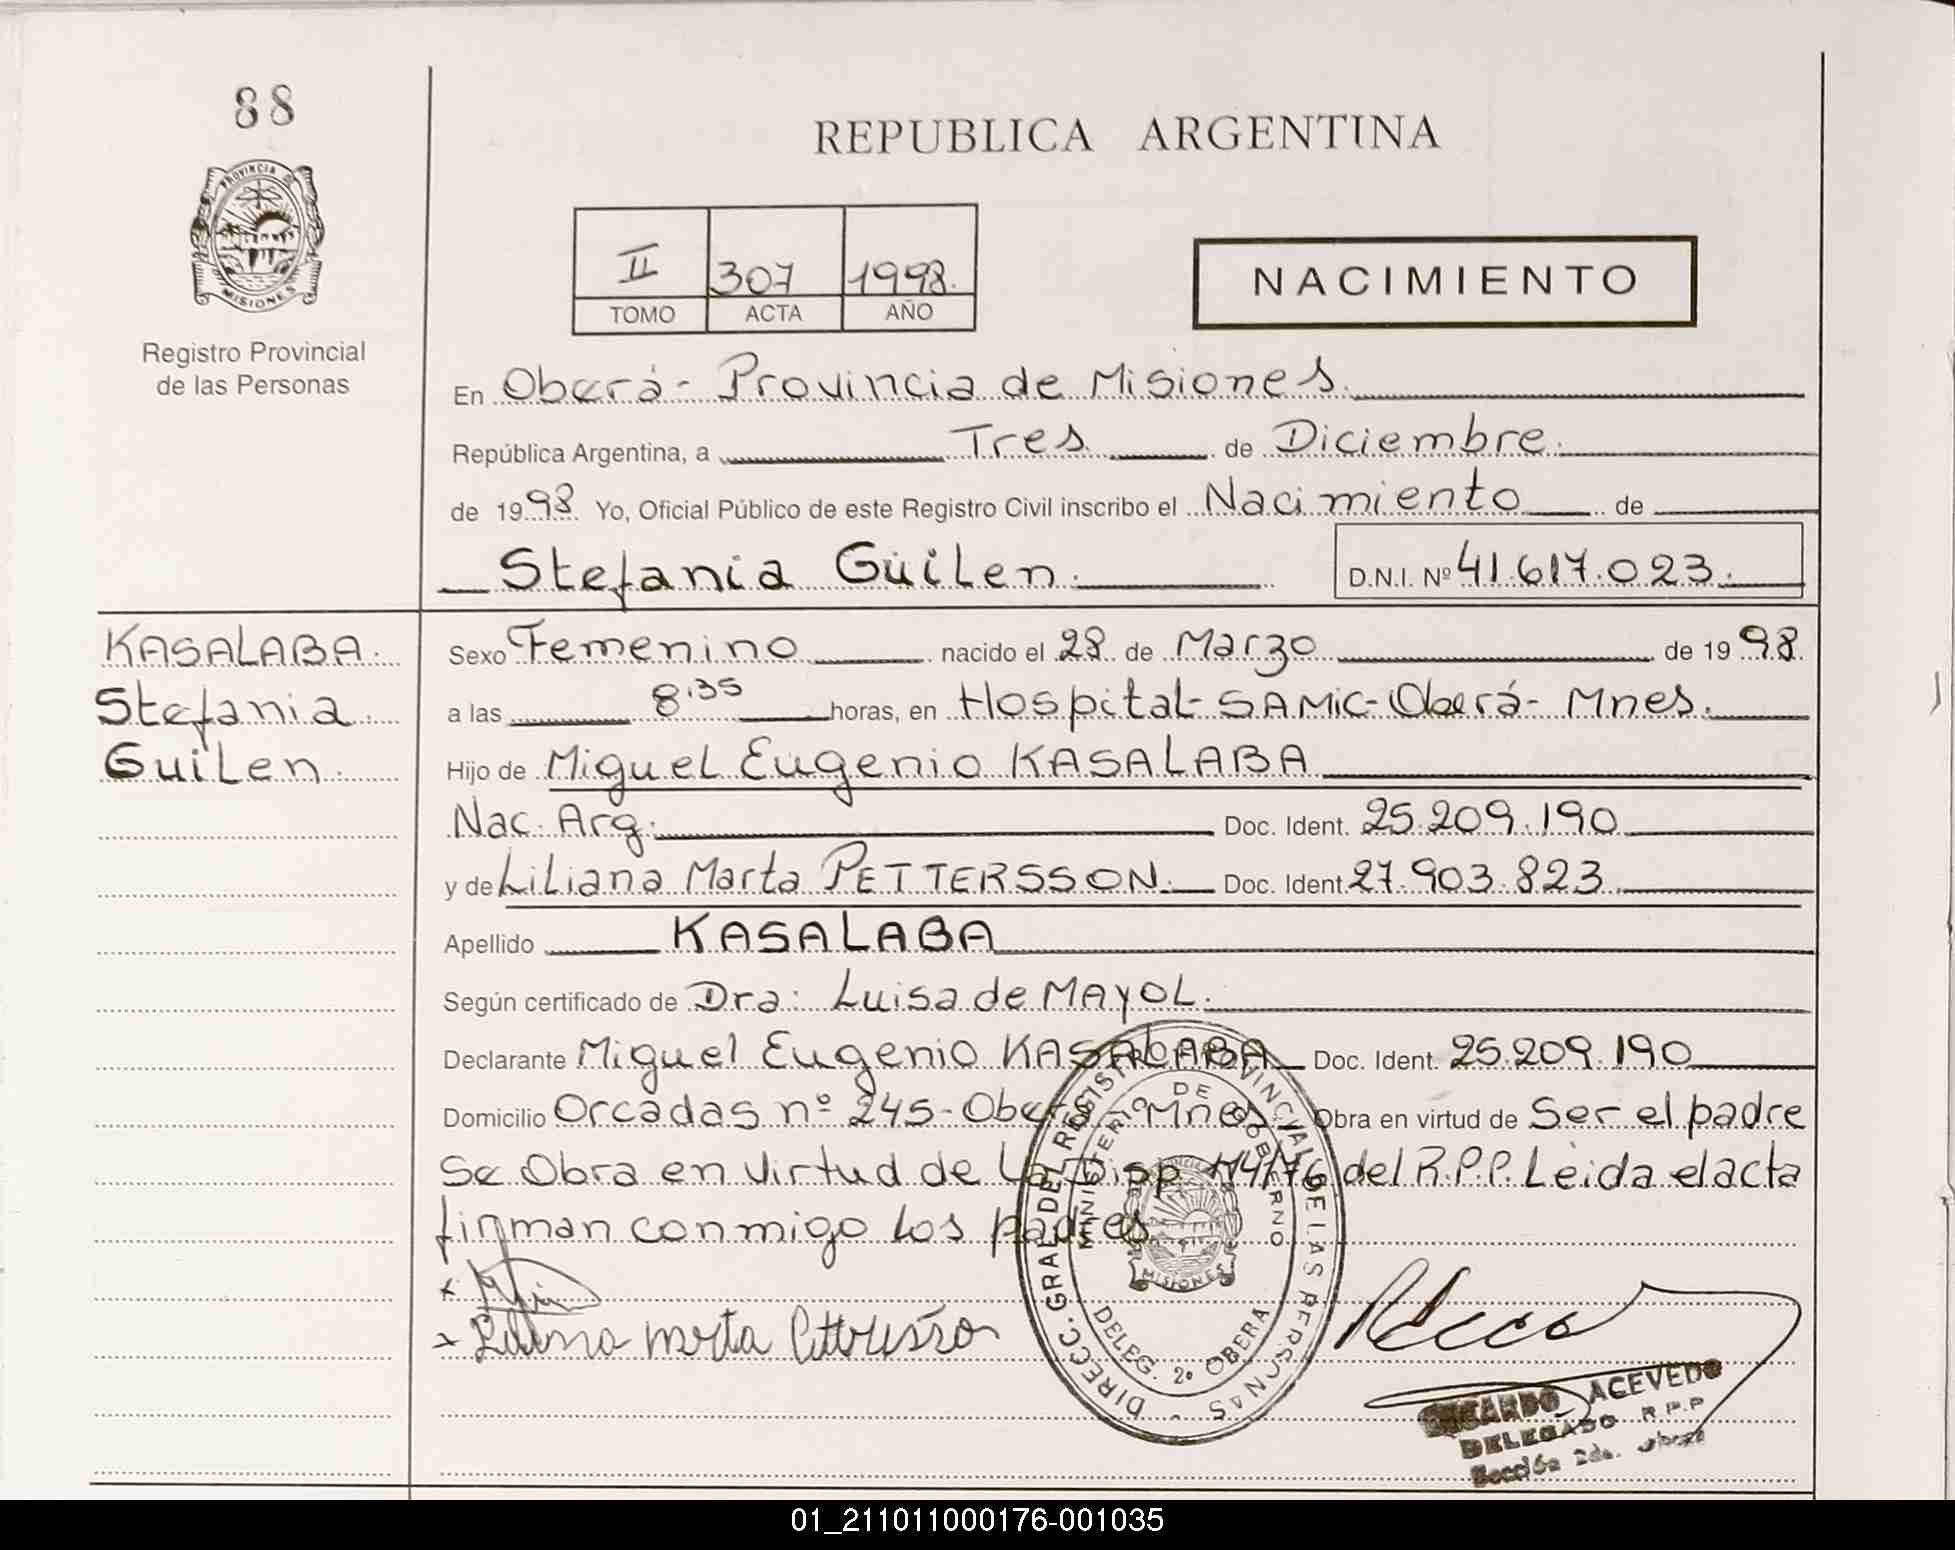 88
REPUBLICA ARGENTINA
PROVINCIA DE
MISIONES
II 307 1998.
TOMO ACTA AÑO
NACIMIENTO
Registro Provincial
de las Personas
En Oberá - Provincia de Misiones.
República Argentina, a Tres de Diciembre.
de 1998 Yo, Oficial Público de este Registro Civil inscribo el Nacimiento de
Stefania Guilen. D.N.I. Nº 41.617.023.
KASALABA.
Stefania
Guilen.
Sexo Femenino nacido el 28 de Marzo de 1998.
a las 8:35 horas, en Hospital - SAMIC - Oberá - Mnes.
Hijo de Miguel Eugenio KASALABA
Nac. Arg. Doc. Ident. 25.209.190
y de Liliana Marta PETTERSSON. Doc. Ident. 27.903.823.
Apellido KASALABA
Según certificado de Dra: Luisa de MAYOL.
Declarante Miguel Eugenio KASALABA Doc. Ident. 25.209.190
Domicilio Orcadas nº 245 - Oberá - Mnes Obra en virtud de Ser el padre
Se Obra en virtud de la Disp 114/76 del R.P.P. Leida el acta
firman conmigo los padres
DIRECC. GRAL. DEL REGISTRO PROVINCIAL DE LAS PERSONAS -
MINISTERIO DE GOBIERNO
MISIONES
DELEG. 2º OBERA
Liliana Marta Pettersson
RICARDO ACEVEDO
DELEGADO R.P.P
Sección 2da. Oberá
01_211011000176-001035